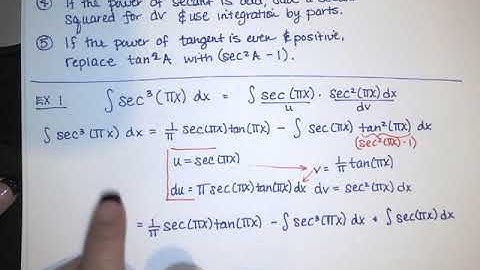 ④ If the power of secant is odd, save a secant
squared for dv & use integration by parts.
⑤ If the power of tangent is even & positive,
replace tan²A with (sec²A - 1).
EX 1 ∫sec³(πx) dx = ∫ sec(πx) · sec²(πx) dx
u dv
∫sec³(πx) dx = 1/π sec(πx)tan(πx) - ∫ sec(πx) tan²(πx) dx
(sec²(πx) - 1)
u = sec(πx) v = 1/π tan(πx)
du = π sec(πx)tan(πx) dx dv = sec²(πx) dx
= 1/π sec(πx)tan(πx) - ∫sec³(πx) dx + ∫ sec(πx) dx